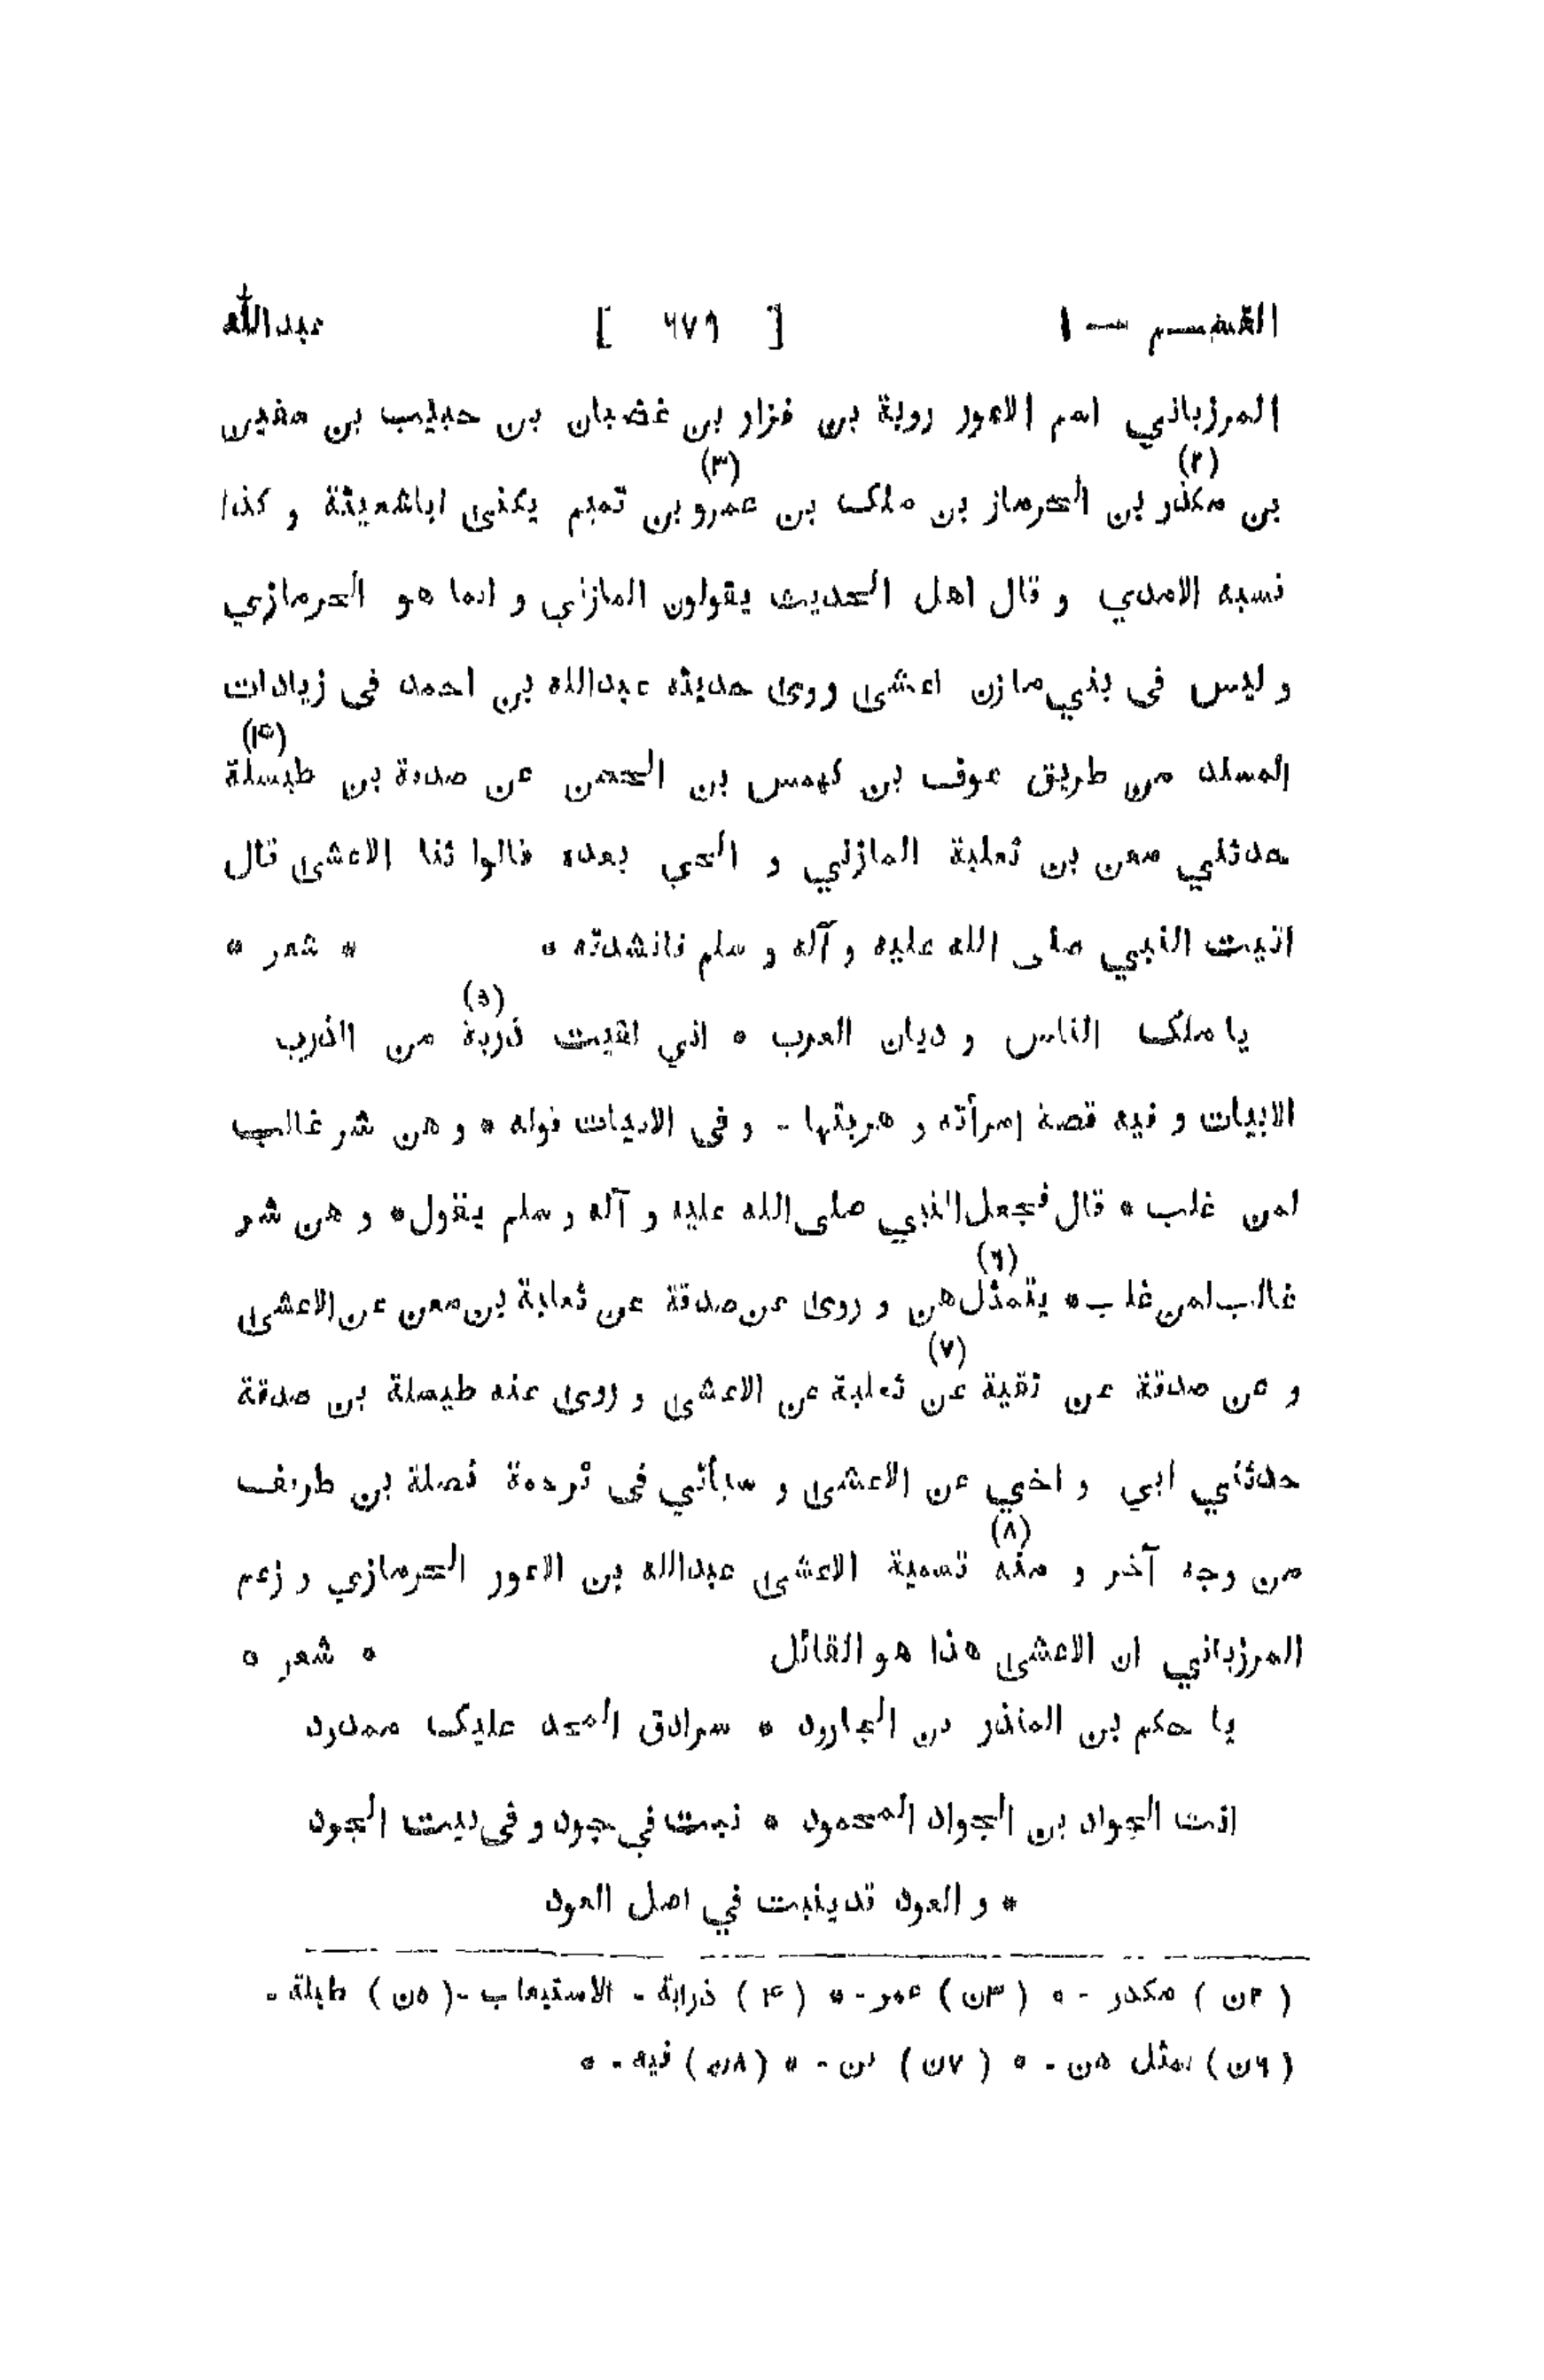 القسم — ١ [ ٦٧٩ ] عبدالله
المرزباني اسم الاعور روبة بن فزار بن غضبان بن حبيب بن سفين
بن مكذر (٢) بن الحرماز بن ملك بن عمرو (٣) بن تميم يكنى اباشعيثة و كذا
نسبه الامدي و قال اهل الحديث يقولون المازني و انما هو الحرمازي
و ليس فى بني مازن اعشى روى حديثه عبدالله بن احمد فى زيادات
المسند من طريق عوف بن كهمس بن الحسن عن صدقة بن طيسلة (۴)
حدثني معن بن ثعلبة المازني و الحي بعده قالوا ثنا الاعشى قال
اتيت النبي صلى الله عليه و آله و سلم فانشدته * * شعر *
يا ملك الناس و ديان العرب * اني لقيت ذربة (٥) من الذرب
الابيات و فيه قصة امرأته و هربتها - و فى الابيات قوله * و هن شر غالب
لمن غلب * قال فجعل النبي صلى الله عليه و آله و سلم يقول * و هن شر
غالب لمن غلب * يتمثل هن (٦) و روى عن صدقة عن ثعلبة بن معن عن الاعشى
و عن صدقة عن نقية عن (٧) ثعلبة عن الاعشى و روى عنه طيسلة بن صدقة
حدثني ابي و اخي عن الاعشى و سيأتي فى ترجمة نضلة بن طريف
من وجه آخر و منه (٨) تسمية الاعشى عبدالله بن الاعور الحرمازي و زعم
المرزباني ان الاعشى هذا هو القائل * شعر *
يا حكم بن المنذر بن الجارود * سرادق المجد عليك ممدود
انت الجواد بن الجواد المحمود * نبت في جود و فى بيت الجود
* و العود قد ينبت في اصل العود
( ٢ن ) مكدر - * ( ٣ن ) عمر - * ( ۴ ) ذرابة - الاستيعاب - ( ٥ن ) طيلة -
( ٦ن ) بمثل هن - * ( ٧ن ) بن - * ( ٨ن ) فيه - *